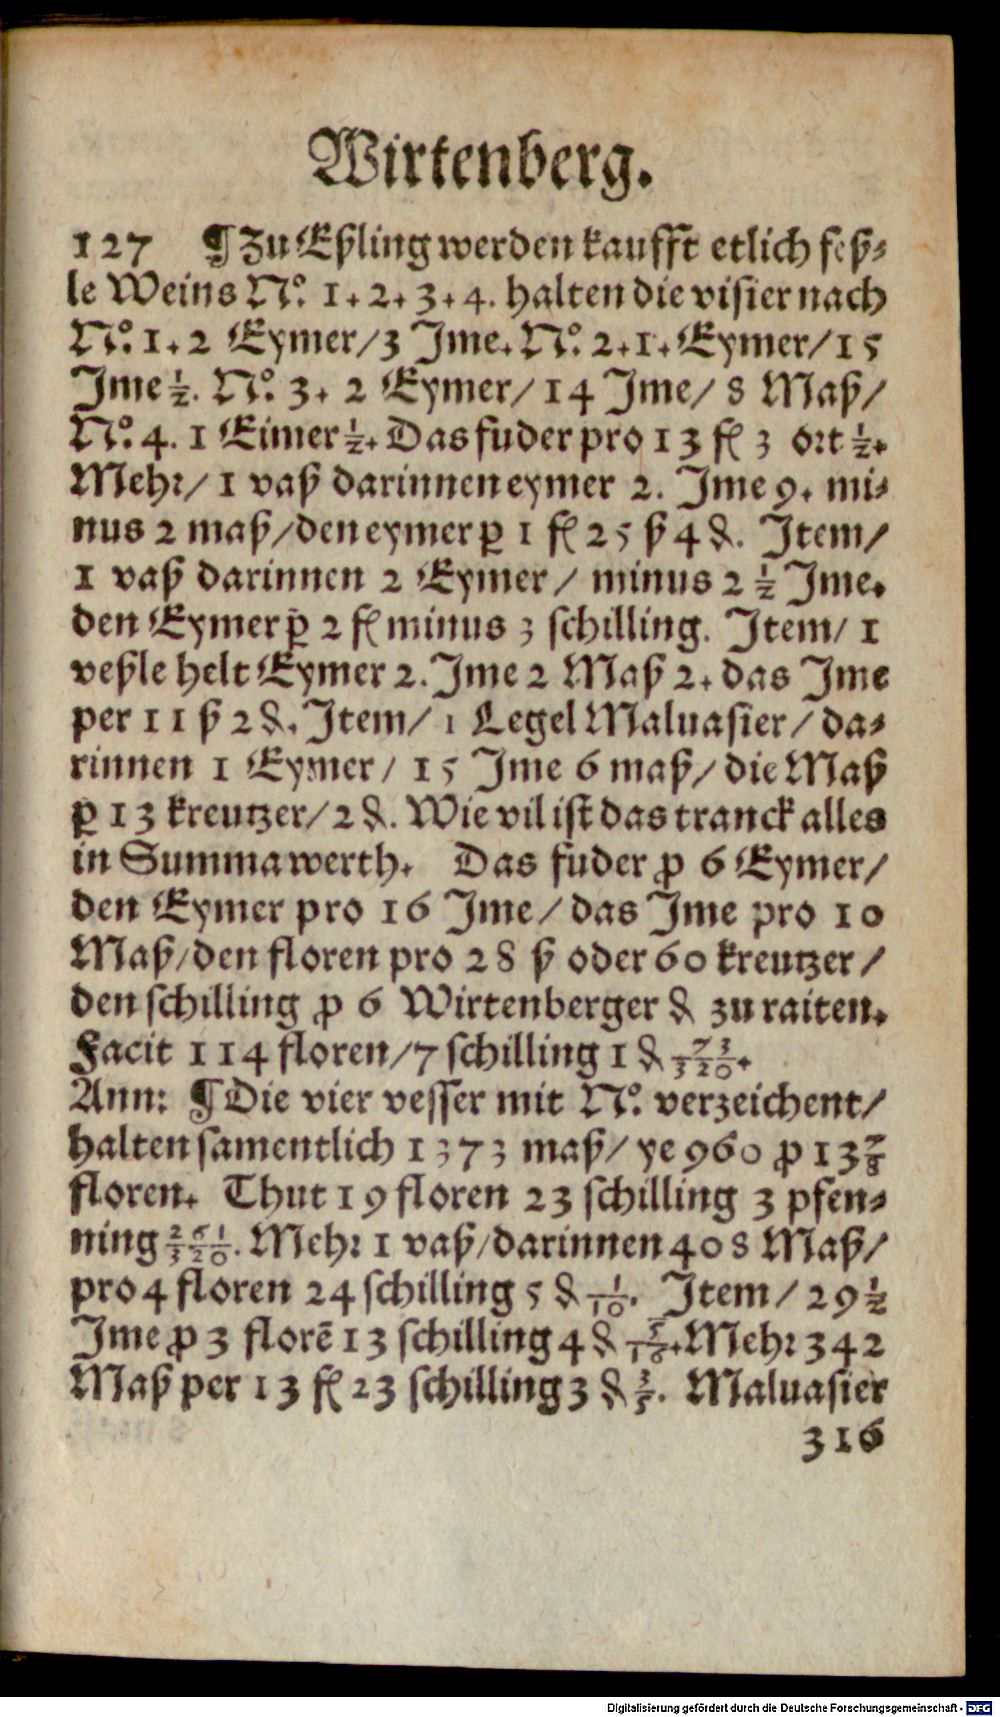 Wirtenberg.
127 ¶ Zu Eßling werden kaufft etlich feß-
le Weins No. 1. 2. 3. 4. halten die visier nach
No. 1. 2 Eymer/3 Jme. No. 2. 1. Eymer/15
Jme ½. No. 3. 2 Eymer/ 14 Jme/ 8 Maß/
No. 4. 1 Eimer ½. Das fuder pro 13 fl 3 ort ½.
Mehr/ 1 vaß darinnen eymer 2. Jme 9. mi-
nus 2 maß/den eymer ꝑ 1 fl 25 ß 4 ₰. Item/
1 vaß darinnen 2 Eymer/ minus 2 ½ Jme.
den Eymer ꝑ 2 fl minus 3 schilling. Item/ 1
veßle helt Eymer 2. Jme 2 Maß 2. das Jme
per 11 ß 2 ₰. Item/ 1 Legel Maluasier/ da-
rinnen 1 Eymer/ 15 Jme 6 maß/ die Maß
ꝑ 13 kreutzer/ 2 ₰. Wie vil ist das tranck alles
in Summa werth. Das fuder ꝓ 6 Eymer/
den Eymer pro 16 Jme/ das Jme pro 10
Maß/den floren pro 28 ß oder 60 kreutzer/
den schilling ꝓ 6 Wirtenberger ₰ zu raiten.
Facit 114 floren/7 schilling 1 ₰ 73/320.
Ann: ¶ Die vier vesser mit No. verzeichent/
halten samentlich 1373 maß/ ye 960 ꝓ 13 7/8
floren. Thut 19 floren 23 schilling 3 pfen-
ning 251/320. Mehr 1 vaß/darinnen 408 Maß/
pro 4 floren 24 schilling 5 ₰ 1/10. Item/ 29 ½
Jme ꝓ 3 florē 13 schilling 4 ₰ 5/16. Mehr 342
Maß per 13 fl 23 schilling 3 ₰ 2/5. Maluasier
316
Digitalisierung gefördert durch die Deutsche Forschungsgemeinschaft - DFG